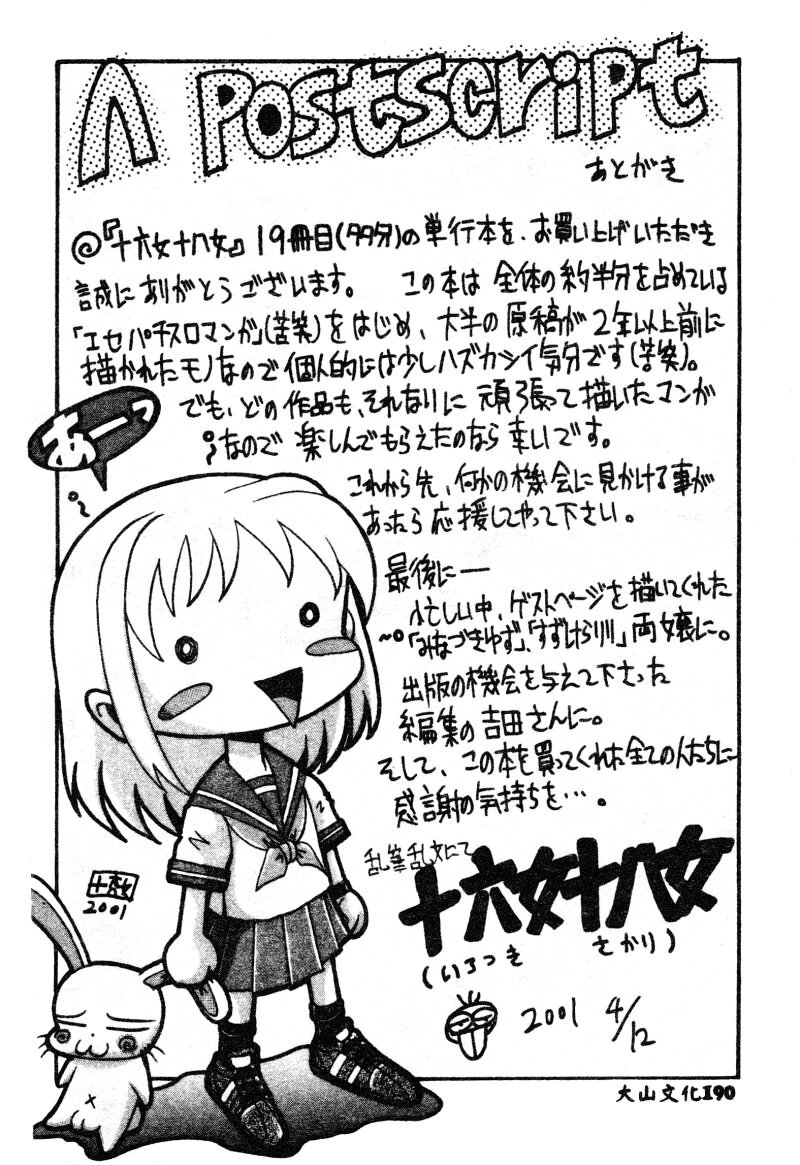 A Postscript
あとがき
@『十六女十八女』19冊目(多分)の単行本を、お買い上げいただき
誠にありがとうございます。 この本は全体の約半分を占めている
「エセパチスロマンガ」(苦笑)をはじめ、大半の原稿が2年以上前に
描かれたモノなので個人的には少しハズカシイ気分です(苦笑)。
でも、どの作品も、それなりに頑張って描いたマンガ
なので楽しんでもらえたのなら幸いです。
あーっ
これから先、何かの機会に見かける事が
あったら応援してやって下さい。
最後に──
忙しい中、ゲストページを描いてくれた
「みなづきゆず」、「すずけらりり」両嬢に。
出版の機会を与えて下さった
編集の吉田さんに。
そして、この本を買ってくれた全ての人たちに
感謝の気持ちを…。
乱筆乱文にて
十六女十八女
(いろつき さかり)
2001 4/12
2001
大山文化I90